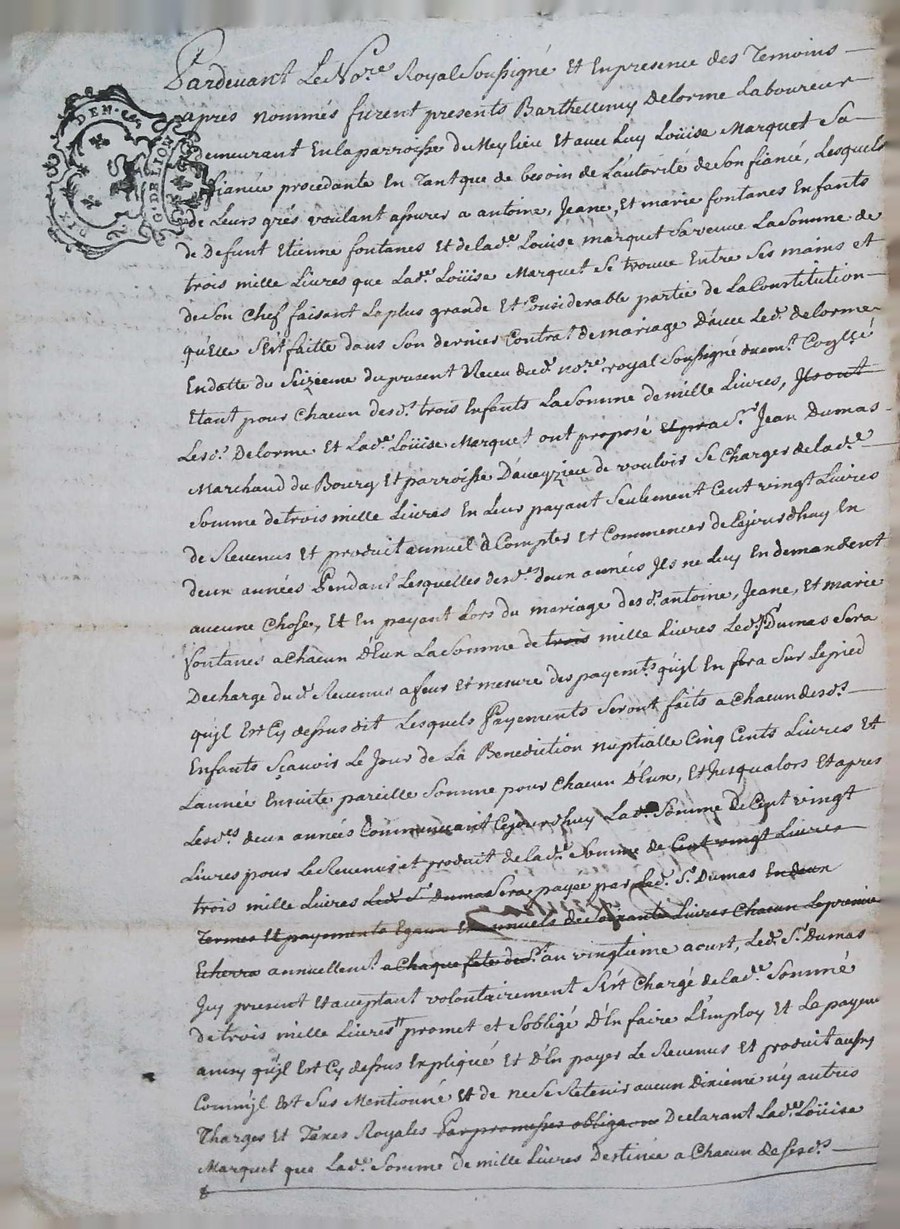 Pardevant Le No.re Royal Soussigné Et En presence des Temoins
DEN.
G. DE LION
SIX
apres nommés furent presents Barthellemy Delorme Laboureur
demeurant En la parroisse du Meylieu Et avec Luy Loüise Marquet Sa
fiancée procedante En Tant que de besoin de L'autorité de Son fiancé, Lesquels
de Leurs grés voulant assurer a antoine, Jeane, Et marie fontanes Enfants
de Deffunt Etienne fontanes Et de lad.e Loüise marquet Sa veuve La Somme de
trois mille Livres que Lad.e Loüise Marquet Se trouve Entre Ses mains et
de Son Chef faisant Le plus grande Et Considerable partie de La Constitution
qu'elle S'est faitte dans Son dernier Contrat de mariage D'avec Led. delorme
En datte du Seizieme du present Receu du d. no.re royal Soussigné
Etant pour Chacun des d.s trois Enfants La Somme de mille Livres, Ils ont
Les d.s Delorme Et Lad.e Loüise Marquet ont proposé a S.r Jean Dumas
Marchand du Bourg Et parroisse D'aveyzieu de vouloir Se Charger de lad.e
Somme de trois mille Livres En Leur payant Seulement Cent vingt Livres
de Revenus Et produit annuel à Compter Et Commencer de Cejourdhuy En
deux années Pendant Lesquelles des.es deux années Ils ne Luy En demandent
aucune Chose, Et En payant Lors du mariage des d.s antoine, Jeane, Et marie
fontanes a Chacun D'Eux La Somme de trois mille Livres Led. S.r Dumas Sera
Decharge du d. Revenus a feur Et mesure des payem.ts qu'jl En fera Sur Le pied
qu'jl Est Cy dessus dit Lesquels Payements Seront faits a Chacun des d.s
Enfants Sçauoir Le Jour de La Benediction nuptialle Cinq Cents Livres Et
Lannée Ensuite pareille Somme pour Chacun D'Eux, Et Jusqualors Et apres
Lesd.es deux années Commencant Cejourdhuy Lad.e Somme de Cent vingt
Livres pour Le Revenus et produit de lad.e Somme de Cent vingt Livres
trois mille Livres Led. S.r Dumas Sera payée par Led. S.r Dumas En deux
Termes Et payements Egaux Et annuels de Soixante Livres Chacun Le premier
Echerra annuellem.t a Chaque fete de S.t au vingtieme aoust, Led. S.r Dumas
Jcy present Et acceptant volontairement S'est Chargé de lad.e Somme
de trois mille Livres promet et S'obligé D'En faire L'Employ Et Le payem
ainsy qu'jl Est Cy dessus Expliqué Et D'En payer Le Revenus Et produit aussy
Comm'jl Est Sus Mentionné et de ne Se Retenir aucun Dixieme n'y autres
Charges Et Taxes Royales Par promesses obligaons Declarant Lad.e Loüise
Marquet que Lad.e Somme de mille Livres Destinée a Chacun de Ses d.s